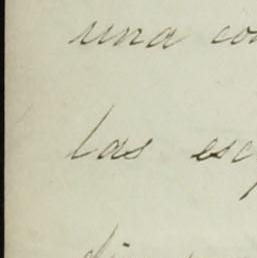 una co
las esc